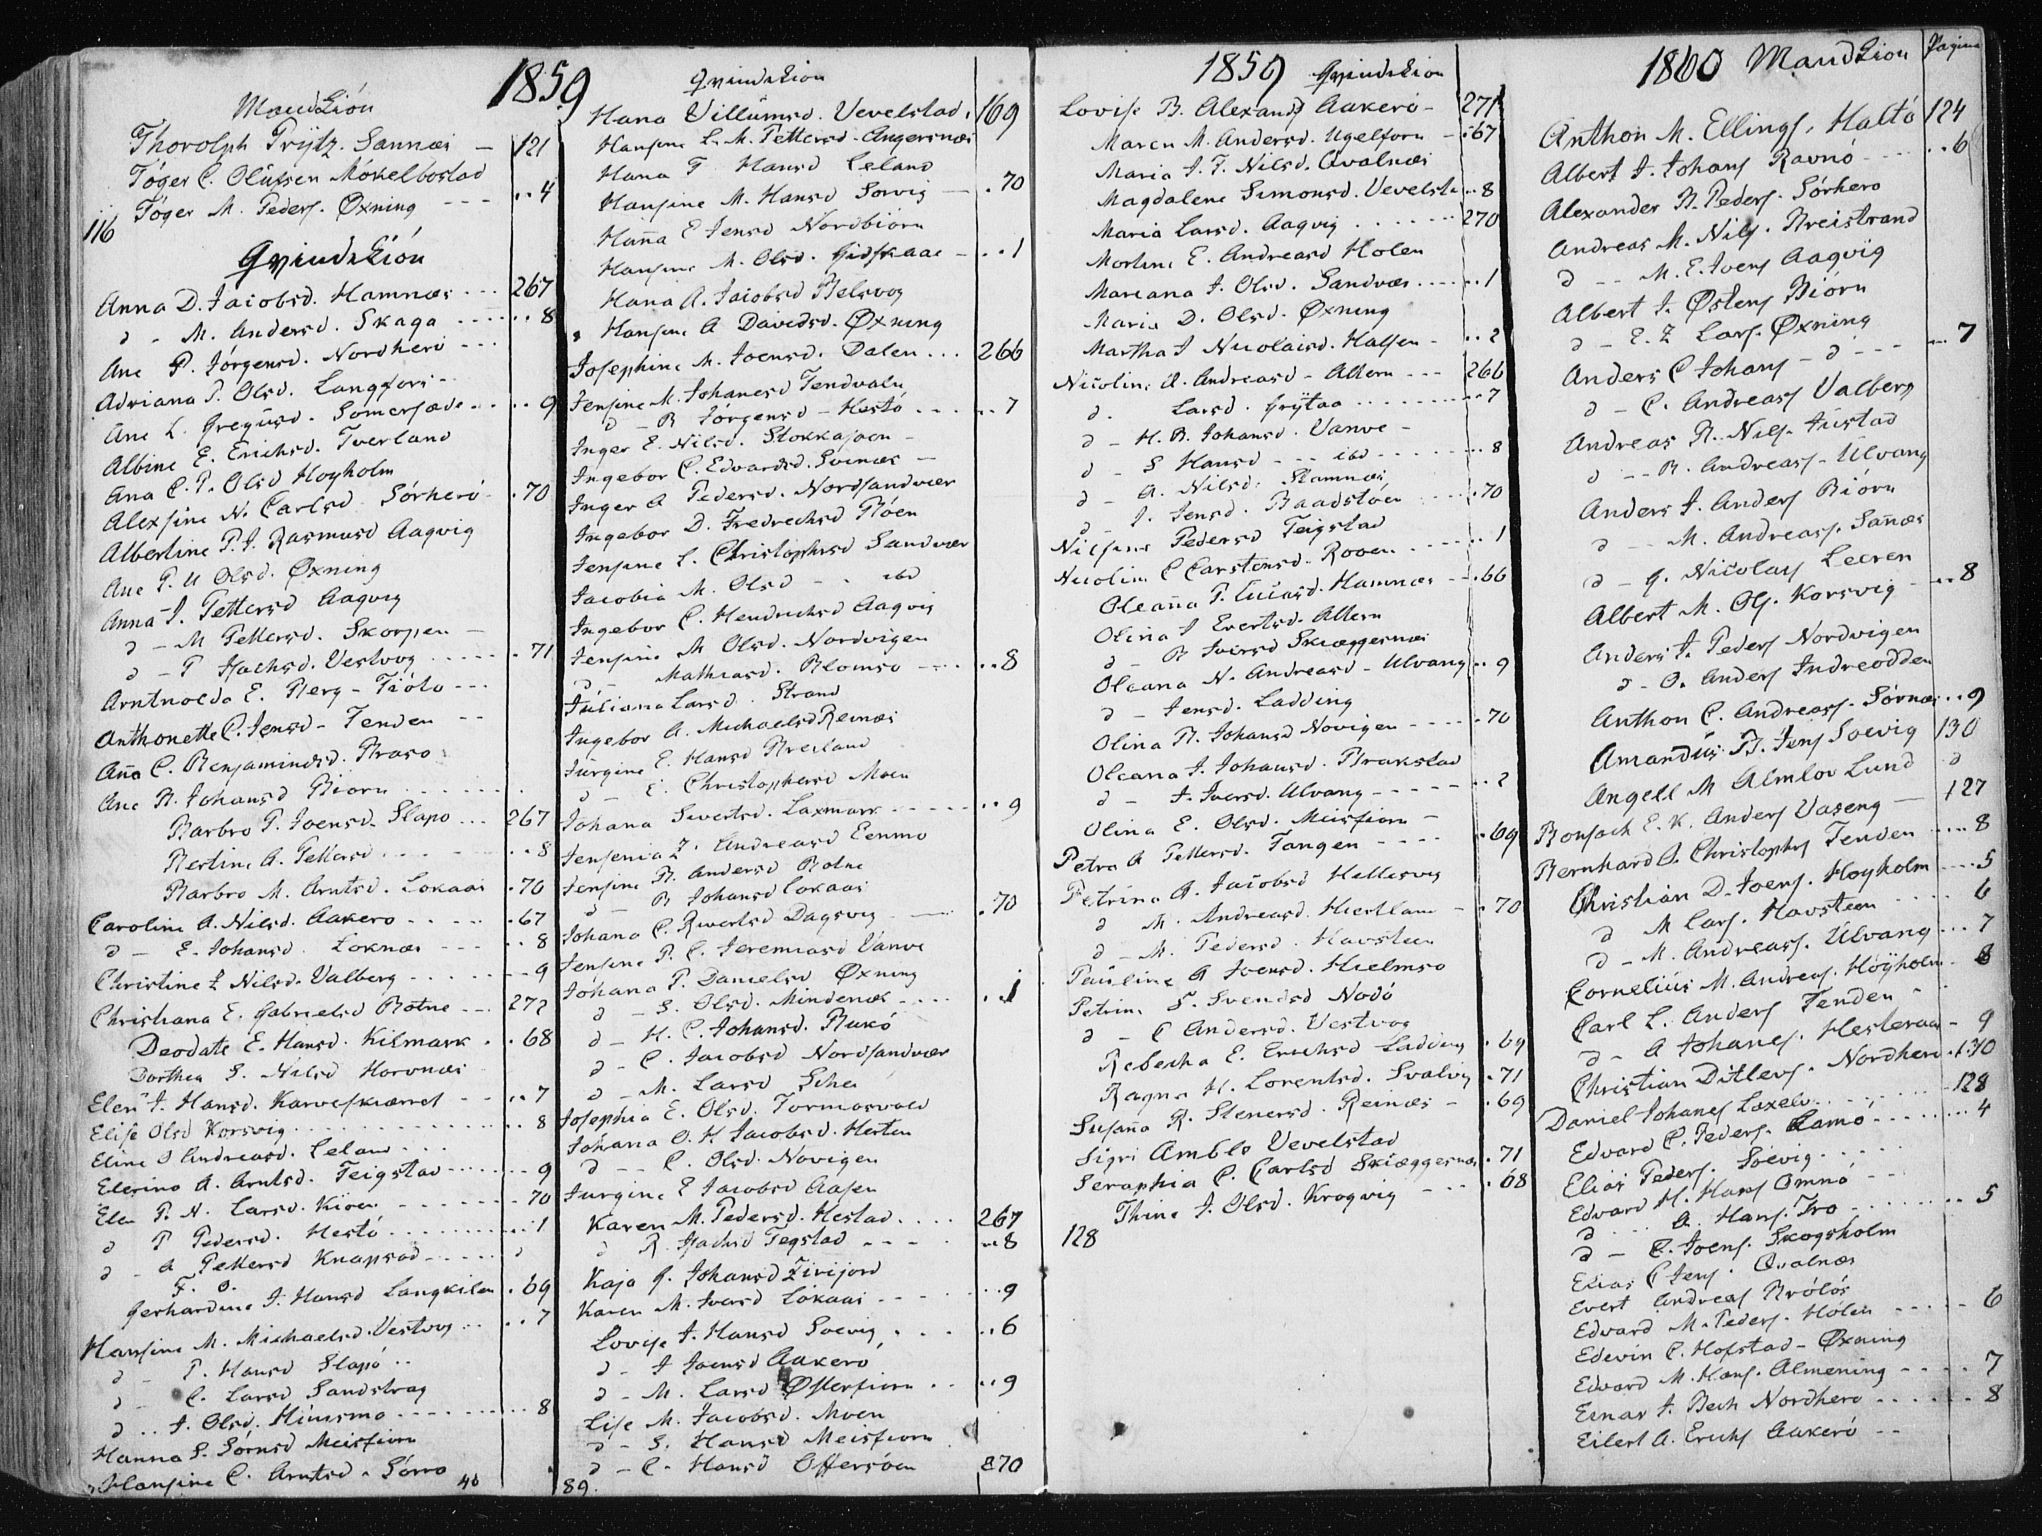 1859
Mandkión
Thorolph Prytz. Sannæs — 121
Tóger C. Olüssen Mókelbostad
Tóger M. Peders. Øxning - - - .. 4
116
Qvindekión
Anna D. Jacobsd. Hamnæs ... 267
d - M. Andersd. Skaga ..... 8
Ane P. Jórgensd. Nordherö ---
Adriana P. Olsd. Langfors -
Ane L. Gregüsd. Somersæde ... 9
Albine E. Erichsd. Tverland
Ana C. P. Olsd Hoyholm
Alexsine N. Carlsd Sórheró . 70
Albertine P. J. Rasmusd Aagvig
Ane P. U Olsd. Øxning
Anna J. Pettersd Aagvig
d - M Pettersd. Skorpen —
d - P Isachsd. Vestvog ..... . 71
Arntnolda E. Berg - Tióto ---
Anthonette C. Jensd - Tenden --
Aña C. Benjaminsd. Braso
Ane B. Johansd Biorn .......
Barbro P. Joensd. Slapo ... 267
Bertine A. Pettersd ...... 8
Barbro M. Arntsd. Lokaas . 70
Caroline A. Nilsd. Aakero ..... . 67
d - E. Johansd. Loknæs --- .. 8
Christine Z Nilsd. Valberg ...... 9
Christiana E. Gabrielsd Botne -- 272
Deodate E. Hansd. Kilmark . . 68
Dorthea S. Nilsd Horvnæs
Elen J. Hansd. Karveskiæret - .. 7
Elise Olsd Korsvig .......... 8
Eline O Andreasd. Leland ...
Elerina A. Arntsd. Teigstad ..... 9
Elen P. N. Larsd. Kioen ....... 70
d P Pedersd. Hestó ........ 1
d - A Pettersd Knapsad ..... d
F. G.
Gerhardine J. Hansd Langkilen . 69
Hansine M. Michaelsd. Vestvog .. .. 7
d - P. Hansd Slapó ..
d - C. Larsd Sandstrag
d .. J. Olsd. Himsmo ........ 8
Hanna S. Sórnsd Meisfiorn
Hansine C. Arntsd. Sórra
40
Qvindekion
Hana Villümsd. Vevelstad. 169
Hansine L. M. Pettersd. Angersnæs
Hana F. Hansd Leland
Hansine M. Hansd Sorvig — . 70
Haña E Jensd Nordbiorn
Hansine M. Olsd. Gidskaae - . . 1
Hana A. Jacobsd Belsvog
Hansine A Davidsd. Øxning
Josephine M. Joensd. Dalen ... 266
Jensine M. Johanesd Tendvaln
d - B Jórgensd - Hestó ..... 7
Inger E. Nilsd. Stokkajoen -
Ingebor C. Edvardsd. Svinæs —
Inger A Pedersd. Nordsandvær
Ingebor D. Fredrechsd Flóen
Jensine L. Christophersd Sandvær
Jacobia M. Olsd - . ibd
Ingebor C. Hendrichsd Aagvig
Jensine M Olsd. Nordvigen
d - Mathiasd. Blomso ---- .. 8
Júliana Larsd. Strand
Ingebor A. Michaelsd Reinæs
Jürgine E. Hansd Breiland
d - E. Christophersd Moen
Johana Sivertsd. Laxmark ..... .. 9
Jensenia Z. Andreasd Eenmo
Jensine B. Andersd Botne
d - B Johansd Lokaas
Johana C. Rivertsd Dagsvig — . 70
Jensine P. C. Jeremiasd Vanve
Johana P. Danielsd Øxning
d - S. Olsd. Mindenæs .... .. 1
d - H. C. Johansd. Bukó
d - C. Jacobsd Nordsandvær
d - M. Larsd Schei
Josephia E. Olsd. Formosvold
Johana O. H Jacobsd. Hesten
d - - C. Olsd. Novigen
Jurgine E Jacobsd Aasen
Karen M. Pedersd. Hestad .... 267
d R. Isachsd Tegstad ---- .. 8
Kaja G. Johansd Zirijord
Karen M. Iversd Lokaas ...... 9
Lovise J. Hansd Soevig . . . .. 6
d - J Joensd Aakeró
d - M. Larsd Øffersiorn .. .. 9
Lise M. Jacobsd. Moen
d - S. Hansd Meisfiorn
d - C. Hansd Offersóen 270
89.
1859 Qvindekion
Lovise B. Alexands Aakeró - 271
Maren M. Andersd. Ugelforn - . 67
Maria J. F. Nilsd. Qvalnæs
Magdalene Simonsd. Vevelsta .. 8
Maria Larsd. Aagvig ...... 270
Mortine E. Andreasd Holen
Mariana J. Olsd. Sandvær ..... 1
Maria D. Olsd. Øxning
Martha J Nicolaisd. Halsen - .. 2
Nicoline A. Andreasd - Altern --- 266
d. Larsd. Grÿtaa ......... 7
d - H. B. Johansd. Vanve -
d - S Hansd - - - ibd ....... 8
d - A. Nilsd. Stamnæs
d - J. Jensd. Baadstóen .... . 70
Nilsine Pedersd Teigstad
Nicoline C Carstensd - Rooen .... 1
Oleaña P. Lücasd. Hamnæs -- . 66
Oliña J Evertsd. Altern
d - B Iversd Skiæggesnæs
Oleana N. Andreasd - Ulvang .. 9
d - Jensd. Ladding
Olina B. Johansd Novigen ---- . 70
Oleana J. Johansd. Brakstad
d - J. Iversd. Ulvang ----- .. 2
Olina E. Olsd. Meisfiorn -
Petra A Pettersd. Tangen --- . 69
Petrina A. Jacobsd Hellesvig
d M. Andreasd. Hiertland - . 70
d - M. Pedersd. Havsteen
Paüline A Joensd. Hielmso
Petrine S. Svendsd Nodó
d - C Andersd. Vestvog
Rebecka E. Erichsd Ladding . 69
Ragna H. Lorentsd. Svalvig . 71
Susaña R. Stenersd. Reinæs - . 69
Sigri Amble Vevelstad
Seraphia C. Carlsd Skiæggesnæs . 71
Thine J. Olsd. Krogvig - - . . 68
128
1860 Mandkion Pagina
Anthon M. Ellings. Haltó 124
Albert J. Johans Ravnó ..... 6
Alexander B. Peders. Sórhero
Andreas M. Nils. Breistrand
d - - M. E. Ivers Aagvig
Albert J. Østens Biórn
d - E. Z Lars. Øxning
Anders C Johans - d - - - .. 7
d - C. Andreass Valberg
Andreas B. Nils. Tüstad
d - - B. Andreass. Ulvang
Anders J. Anders Biórn
d - - M. Andreass. Sañæs
d - G. Nicolais Leeren
Albert M. Ols. Korsvig — .. 8
Anders J. Peders Nordvigen
d - O. Anders Indreodden
Anthon C. Andreass. Sórnæs .. 9
Amandüs B. Jens Soevig 130
Angell M Almlov Lund d
Bonsach E. K. Anders Vaseng — 127
Bernhard J. Christophs Tenden .... 8
Christian D. Joens. Hoyholm .... 5
d M Lars. Havsteen .... 6
d - M. Andreass. Ülvang ... 7
Cornelius M. Andreas. Höÿholm . 8
Carl L. Anders Tenden -
d - A Johanes. Hesteraa - 9
Christian Ditlevs. Nordhero . 130
Daniel Johanes Laxelv ....... 128
Edvard C. Peders. Ramó ...... 4
Elias Peders. Soevig ....
Edvard H. Hans Omnó - -
d ... A. Hans. Tro ........ 5
d - C. Joens. Skogsholm
Elias C Jens. Qvalnæs
Evert Andreas Brólós
Edvard M. Peders. Holen ..... 6
Edevin C. Hofstad - Øxning
Edvard M. Hans. Almening .... 7
Einar J. Bech Nordhero ...... 8
Eilert A. Erichs Aakeró - -